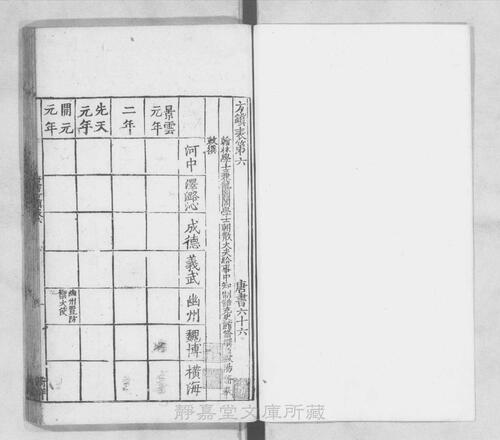 方鎮表第六
唐書六十六
翰林學士兼龍圖閣學士朝散大夫給事中知制誥充史館脩撰
敕撰
河中
澤潞沁
成德
義武
幽州
魏博
橫海
景雲元年
二年
先天元年
開元元年
幽州置防禦大使
靜嘉堂文庫所藏